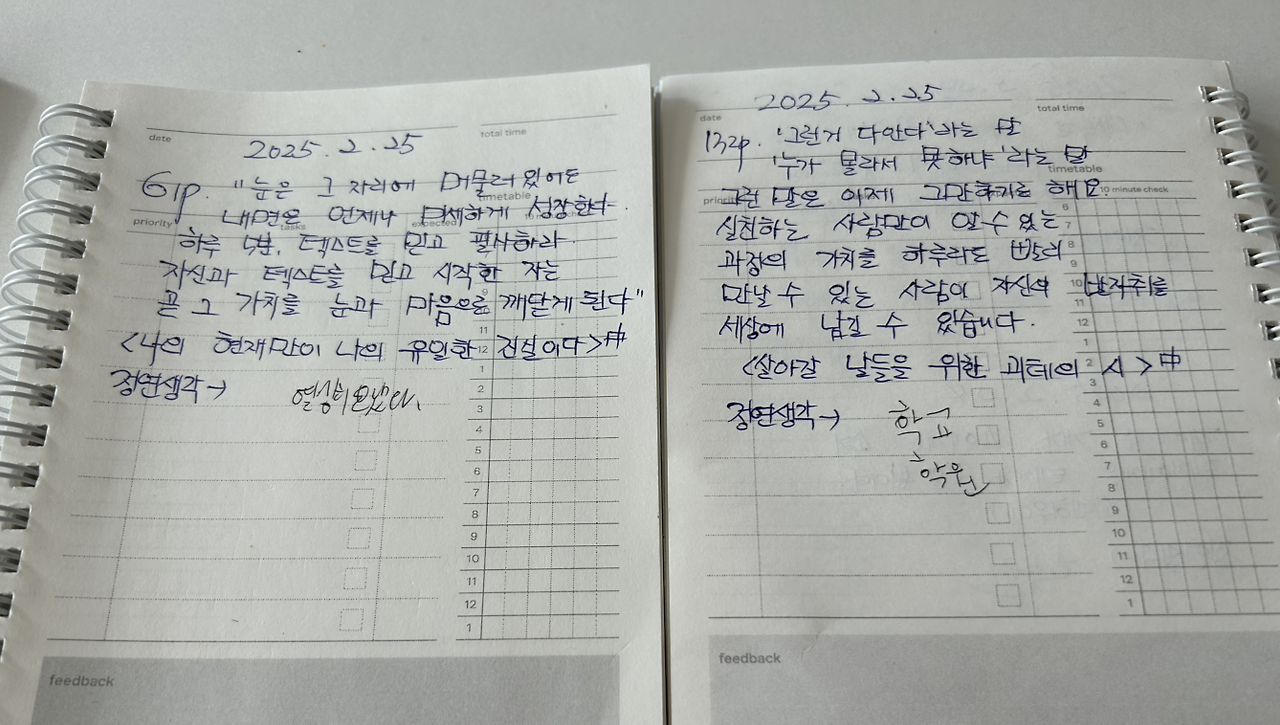 date
total time
2025. 2. 25
61p. "눈은 그 자리에 머물러 있어도
timetable
내면은 언제나 섬세하게 성장한다.
priority
tasks
expected
하루 5분, 텍스트를 믿고 필사하라.
자신과 텍스트를 믿고 시작한 자는
곧 그 가치를 눈과 마음으로 깨닫게 된다"
<나의 현재만이 나의 유일한 진실이다>中
정연생각→
11
12
1
2
3
4
5
6
7
8
9
10
11
12
1
feedback
date
2025. 2. 25
total time
132p. '그런거 다 안다'라는 말
'누가 몰라서 못하냐'라는 말
timetable
그런 말은 이제 그만하기로 해요.
10 minute check
실천하는 사람만이 알 수 있는
과정의 가치를 하루라도 빨리
만날 수 있는 사람이 자신의 발자취를
세상에 남길 수 있습니다.
<살아갈 날들을 위한 괴테의 시>中
정연생각→ 학교
학원
6
7
8
9
10
11
12
1
2
3
4
5
6
7
8
9
10
11
12
1
feedback